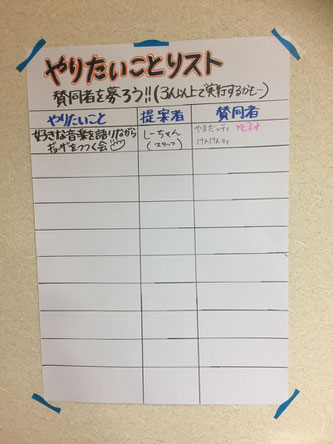 やりたいことリスト
賛同者を募ろう!!(3人以上で実行するかも…)
やりたいこと 提案者 賛同者
好きな音楽を語りながら
ギョーザをつつく会
しーちゃん
(スタッフ)
けんけんティ